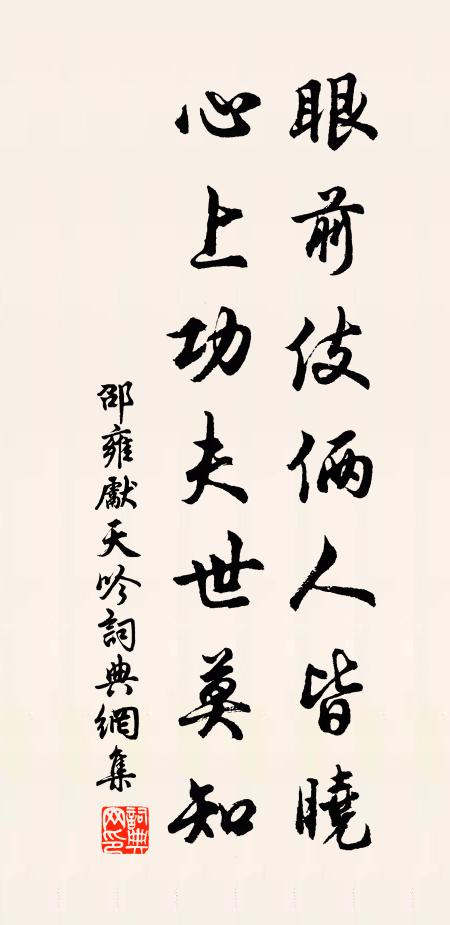 眼前伎倆人皆曉
心上功夫世莫知
邵雍獻天吟詞典網集
詞典網印